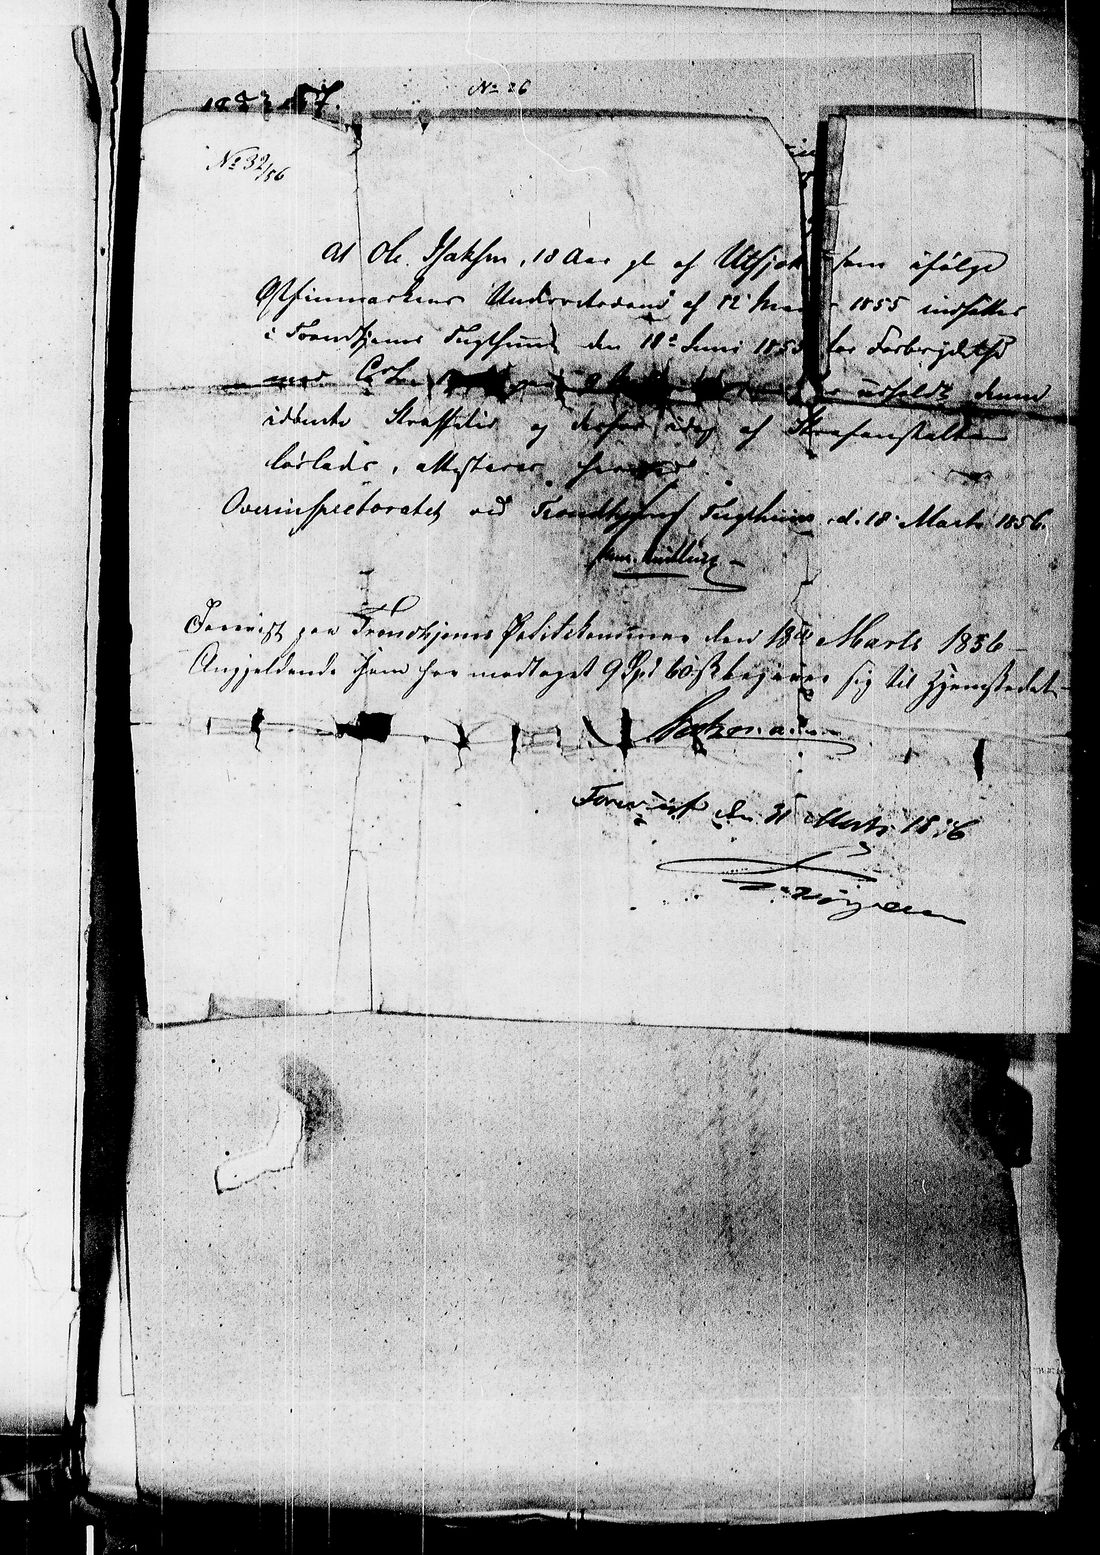 No 26
No 32/56
At Ole Isaksen, 18 Aar gl af Utsjok som ifølge
Østfinmarkens Underretsdom af 12 1855 indsattes
i Trondhjems Tugthuus den 18de Juni 1855 for Forbrydelse
med udholdt denne
idømte Straffetid og derfor idag af Strafanstalten
løslades, attesteres herved
Overinspectoratet ved Trondhjems Tugthuus d. 18 Marts 1856.
Foreviist paa Trondhjems Politikammer den 18de Marts 1856
Angjeldende som har modtaget 9 Spd 60 ß begiver sig til Hjemstedet
Foreviist den 31 Marts 1856